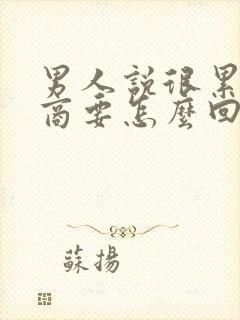 男人說很累
商要怎麼回
蘇揚